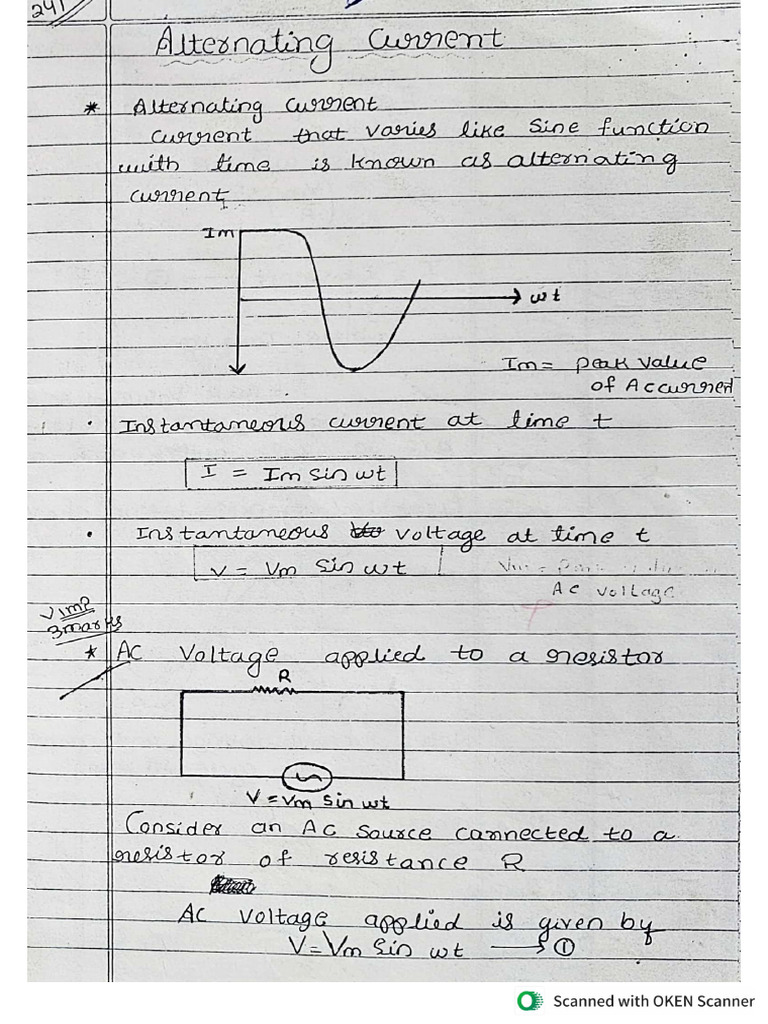 241
Alternating Current
* Alternating current
current that varies like sine function
with time is known as alternating
current
Im
wt
Im = peak value
of Ac current
• Instantaneous current at time t
I = Im sin wt
• Instantaneous voltage at time t
V = Vm sin wt
AC voltage
V imp
3marks
* AC Voltage applied to a resistor
R
V = Vm sin wt
Consider an AC source cannected to a
resistor of resistance R
AC voltage applied is given by
V = Vm Sin wt → ①
Scanned with OKEN Scanner